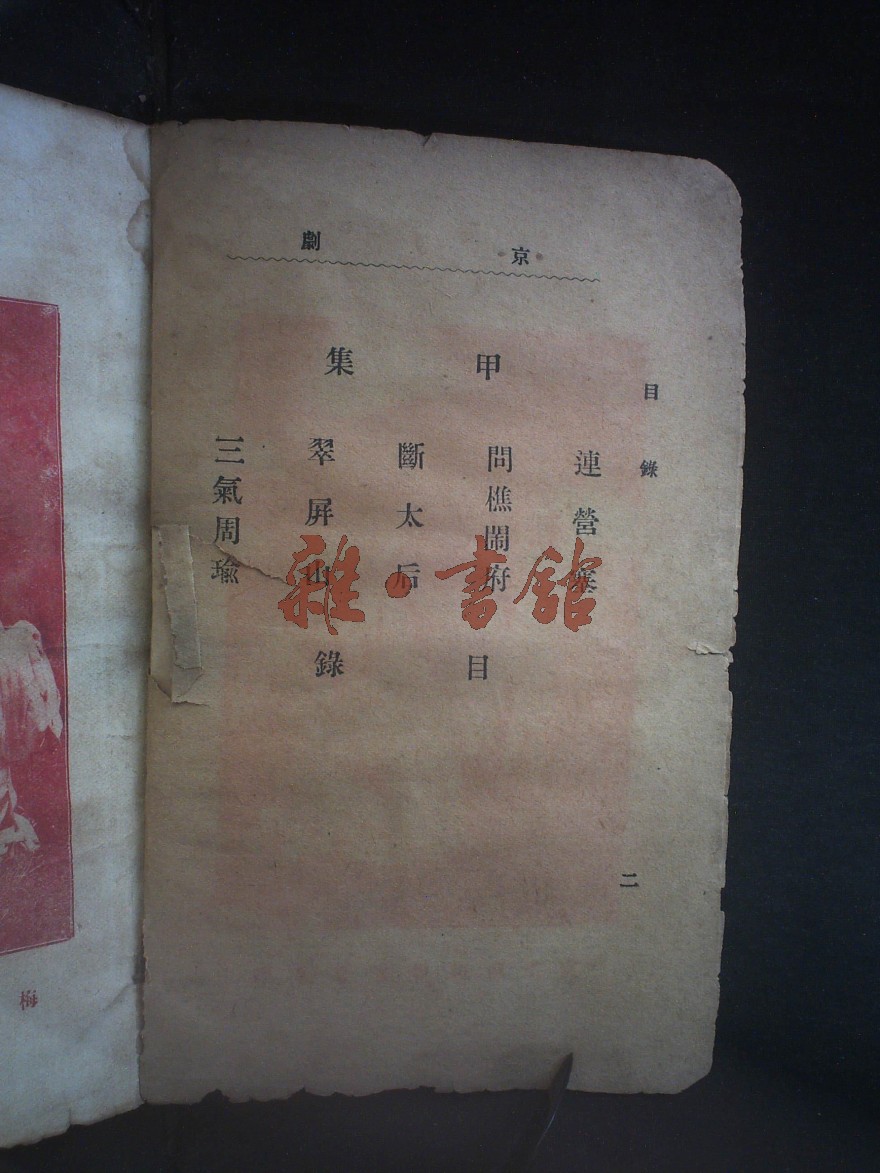 京劇
目錄
二
甲集
連營寨
問樵鬧府
斷太后
翠屏山
三氣周瑜
目錄
雜·書館
梅